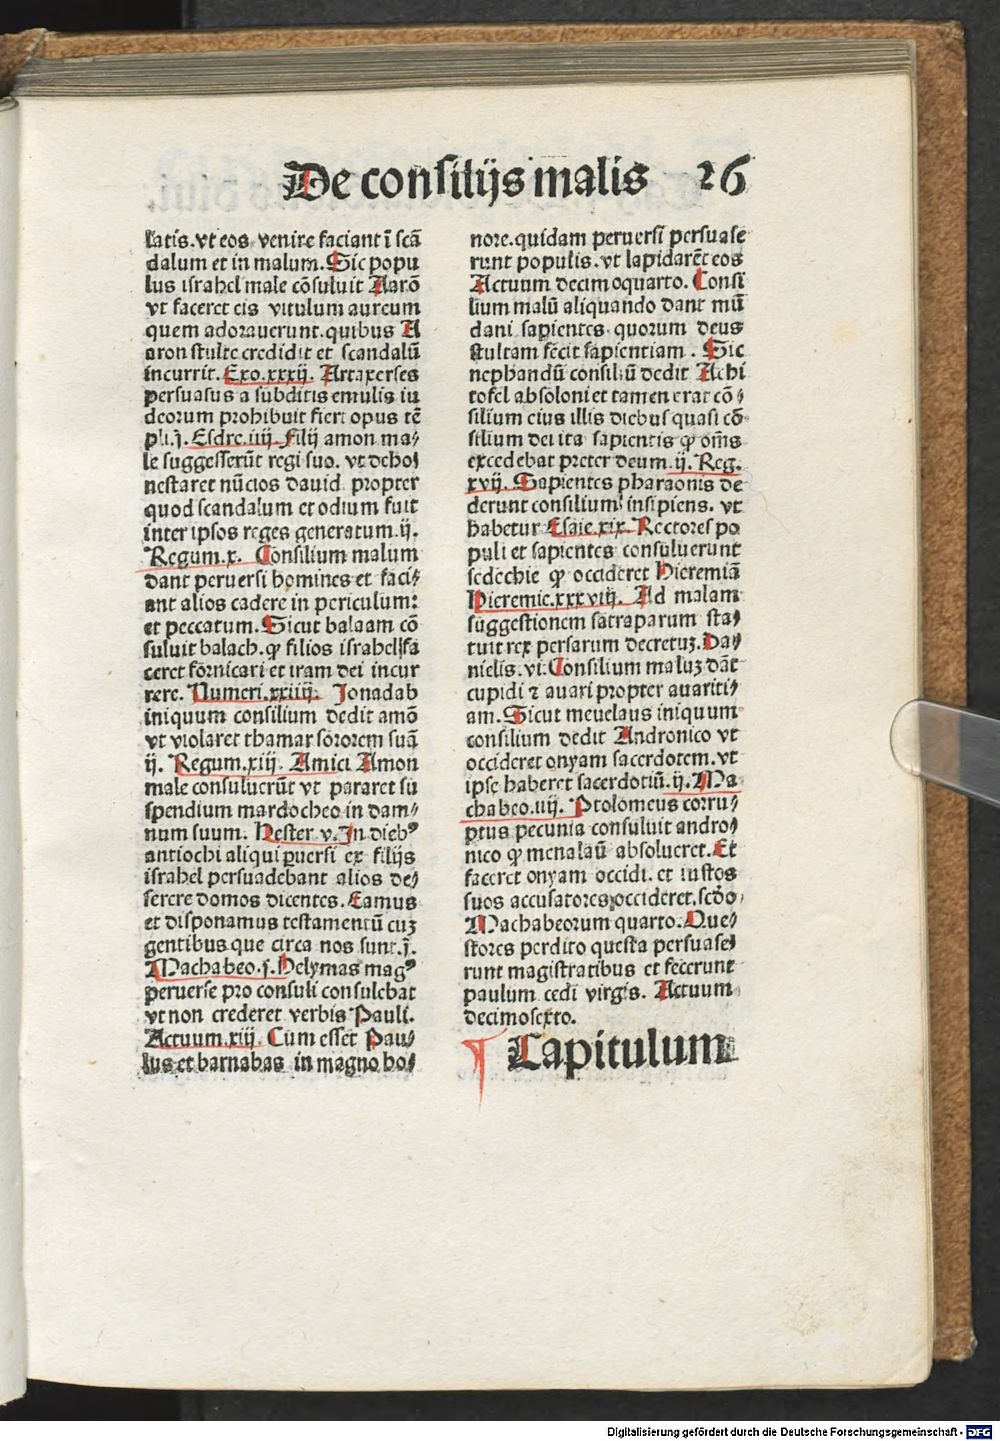 De consilijs malis 26
latis. vt eos venire faciant ī scā
dalum et in malum. Sic popu
lus israhel male cōsuluit Aarō
vt faceret eis vitulum aureum
quem adorauerunt. quibus A
aron stulte credidit et scandalū
incurrit. Exo.xxxij. Artaxerses
persuasus a subditis emulis iu
deorum prohibuit fieri opus tē
pli.j. Esdre.iiij. Filij amon ma⸗
le suggesserūt regi suo. vt deho⸗
nestaret nūcios dauid propter
quod scandalum et odium fuit
inter ipsos reges generatum.ij.
Regum.x. Consilium malum
dant peruersi homines et faci⸗
ant alios cadere in periculum:
et peccatum. Sicut balaam cō
suluit balach. ꝙ filios israhel fa
ceret fornicari et iram dei incur
rere. Numeri.xxiiij. Jonadab
iniquum consilium dedit amō
vt violaret thamar sororem suā
ij. Regum.xiij. Amici Amon
male consuluerūt vt pararet su
spendium mardocheo in dam⸗
num suum. Hester v. In diebꝰ
antiochi aliqui ꝑuersi ex filijs
israhel persuadebant alios de⸗
serere domos dicentes. Eamus
et disponamus testamentū cuꝫ
gentibus que circa nos sunt.j.
Machabeo.j. Helymas magꝰ
peruerse pro consuli consulebat
vt non crederet verbis Pauli.
Actuum.xiij. Cum esset Pau⸗
lus et barnabas in magno ho⸗
nore. quidam peruersi persuase
runt populis. vt lapidarēt eos
Actuum decimoquarto. Consi
lium malū aliquando dant mū
dani sapientes quorum deus
stultam fecit sapientiam. Sic
nephandū consiliū dedit Achi
tofel absoloni et tamen erat cō⸗
silium eius illis diebus quasi cō
silium dei ita sapientis ꝙ om̄s
excedebat preter deum.ij. Reg.
xvij. Sapientes pharaonis de
derunt consilium insipiens. vt
habetur Esaie.xix. Rectores po
puli et sapientes consuluerunt
sedechie ꝙ occideret Hieremiā
Hieremie.xxxviij. Ad malam
suggestionem satraparum sta⸗
tuit rex persarum decretuꝫ. Da⸗
nielis.vi. Consilium maluꝫ dāt
cupidi ⁊ auari propter auariti⸗
am. Sicut meuelaus iniquum
consilium dedit Andronico vt
occideret onyam sacerdotem. vt
ipse haberet sacerdotiū.ij. Ma
chabeo.iiij. Ptolomeus corru⸗
ptus pecunia consuluit andro⸗
nico ꝙ menalaū absolueret. Et
faceret onyam occidi. et iustos
suos accusatores occideret. scd̄o
Machabeorum quarto. Que⸗
stores perdito questa persuase⸗
runt magistratibus et fecerunt
paulum cedi virgis. Actuum
decimosexto.
Capitulum
Digitalisierung gefördert durch die Deutsche Forschungsgemeinschaft - DFG